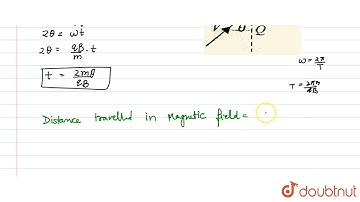 2θ = ωt
2θ = qB/m . t
t = 2mθ/qB
V θ Q
ω = 2π/T
T = 2πm/qB
Distance travelled in Magnetic field =
doubtnut